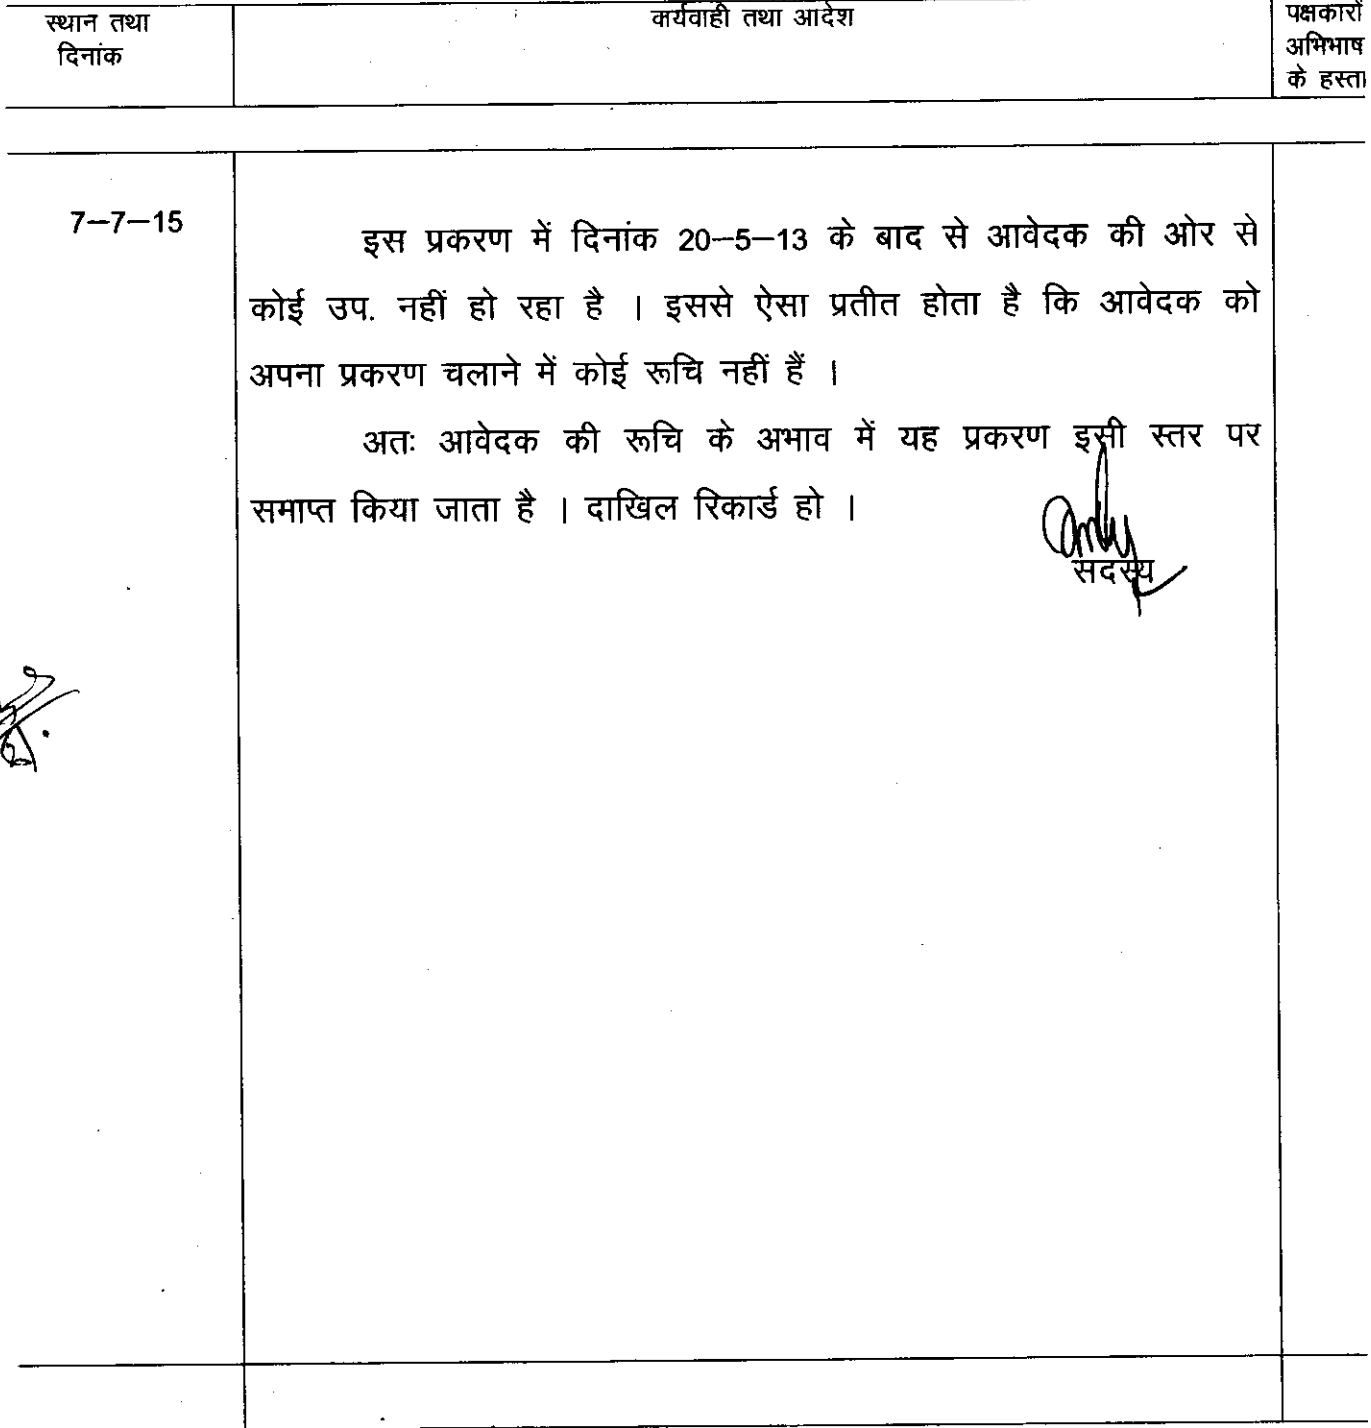 स्थान तथा
दिनांक
कार्यवाही तथा आदेश
पक्षकारों
अभिभाष
के हस्ता
7–7–15
इस प्रकरण में दिनांक 20–5–13 के बाद से आवेदक की ओर से
कोई उप. नहीं हो रहा है । इससे ऐसा प्रतीत होता है कि आवेदक को
अपना प्रकरण चलाने में कोई रूचि नहीं हैं ।
अतः आवेदक की रूचि के अभाव में यह प्रकरण इसी स्तर पर
समाप्त किया जाता है । दाखिल रिकार्ड हो ।
सदस्य